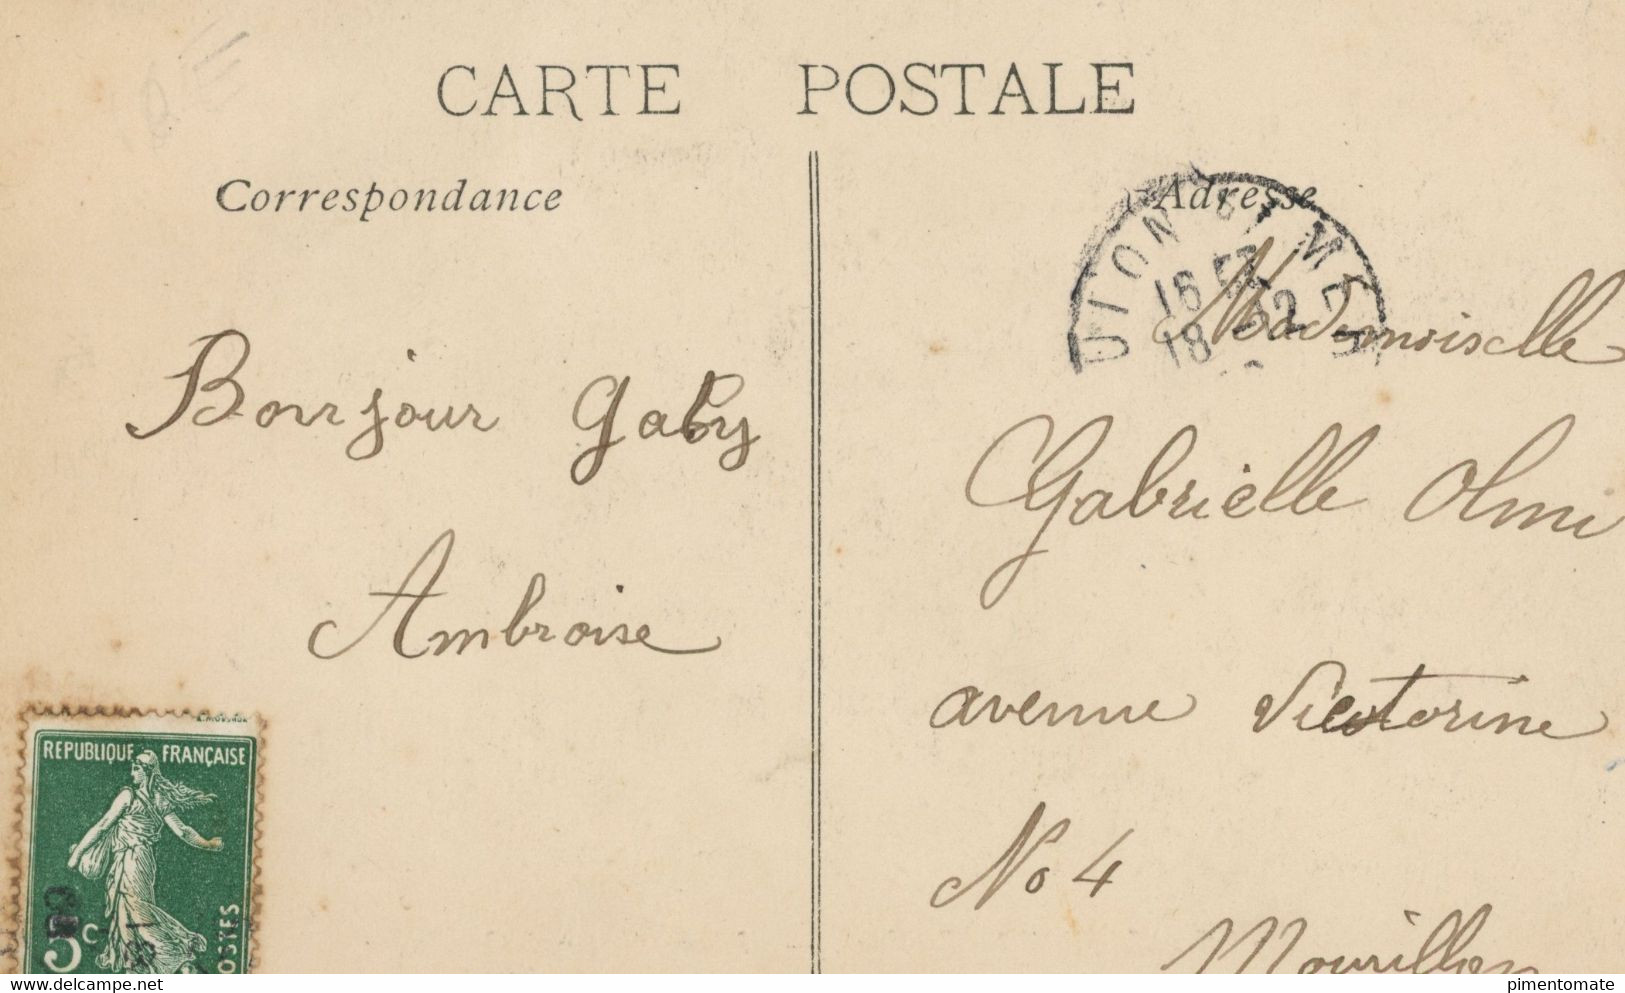 CARTE POSTALE
Correspondance
Adresse
16 
18 12
Bonjour Gaby
Ambroise
Mademoiselle
Gabrielle Olmi
avenue Victorine
No 4
Mourillon
REPUBLIQUE FRANÇAISE
5c
POSTES
www.delcampe.net
pimentomate